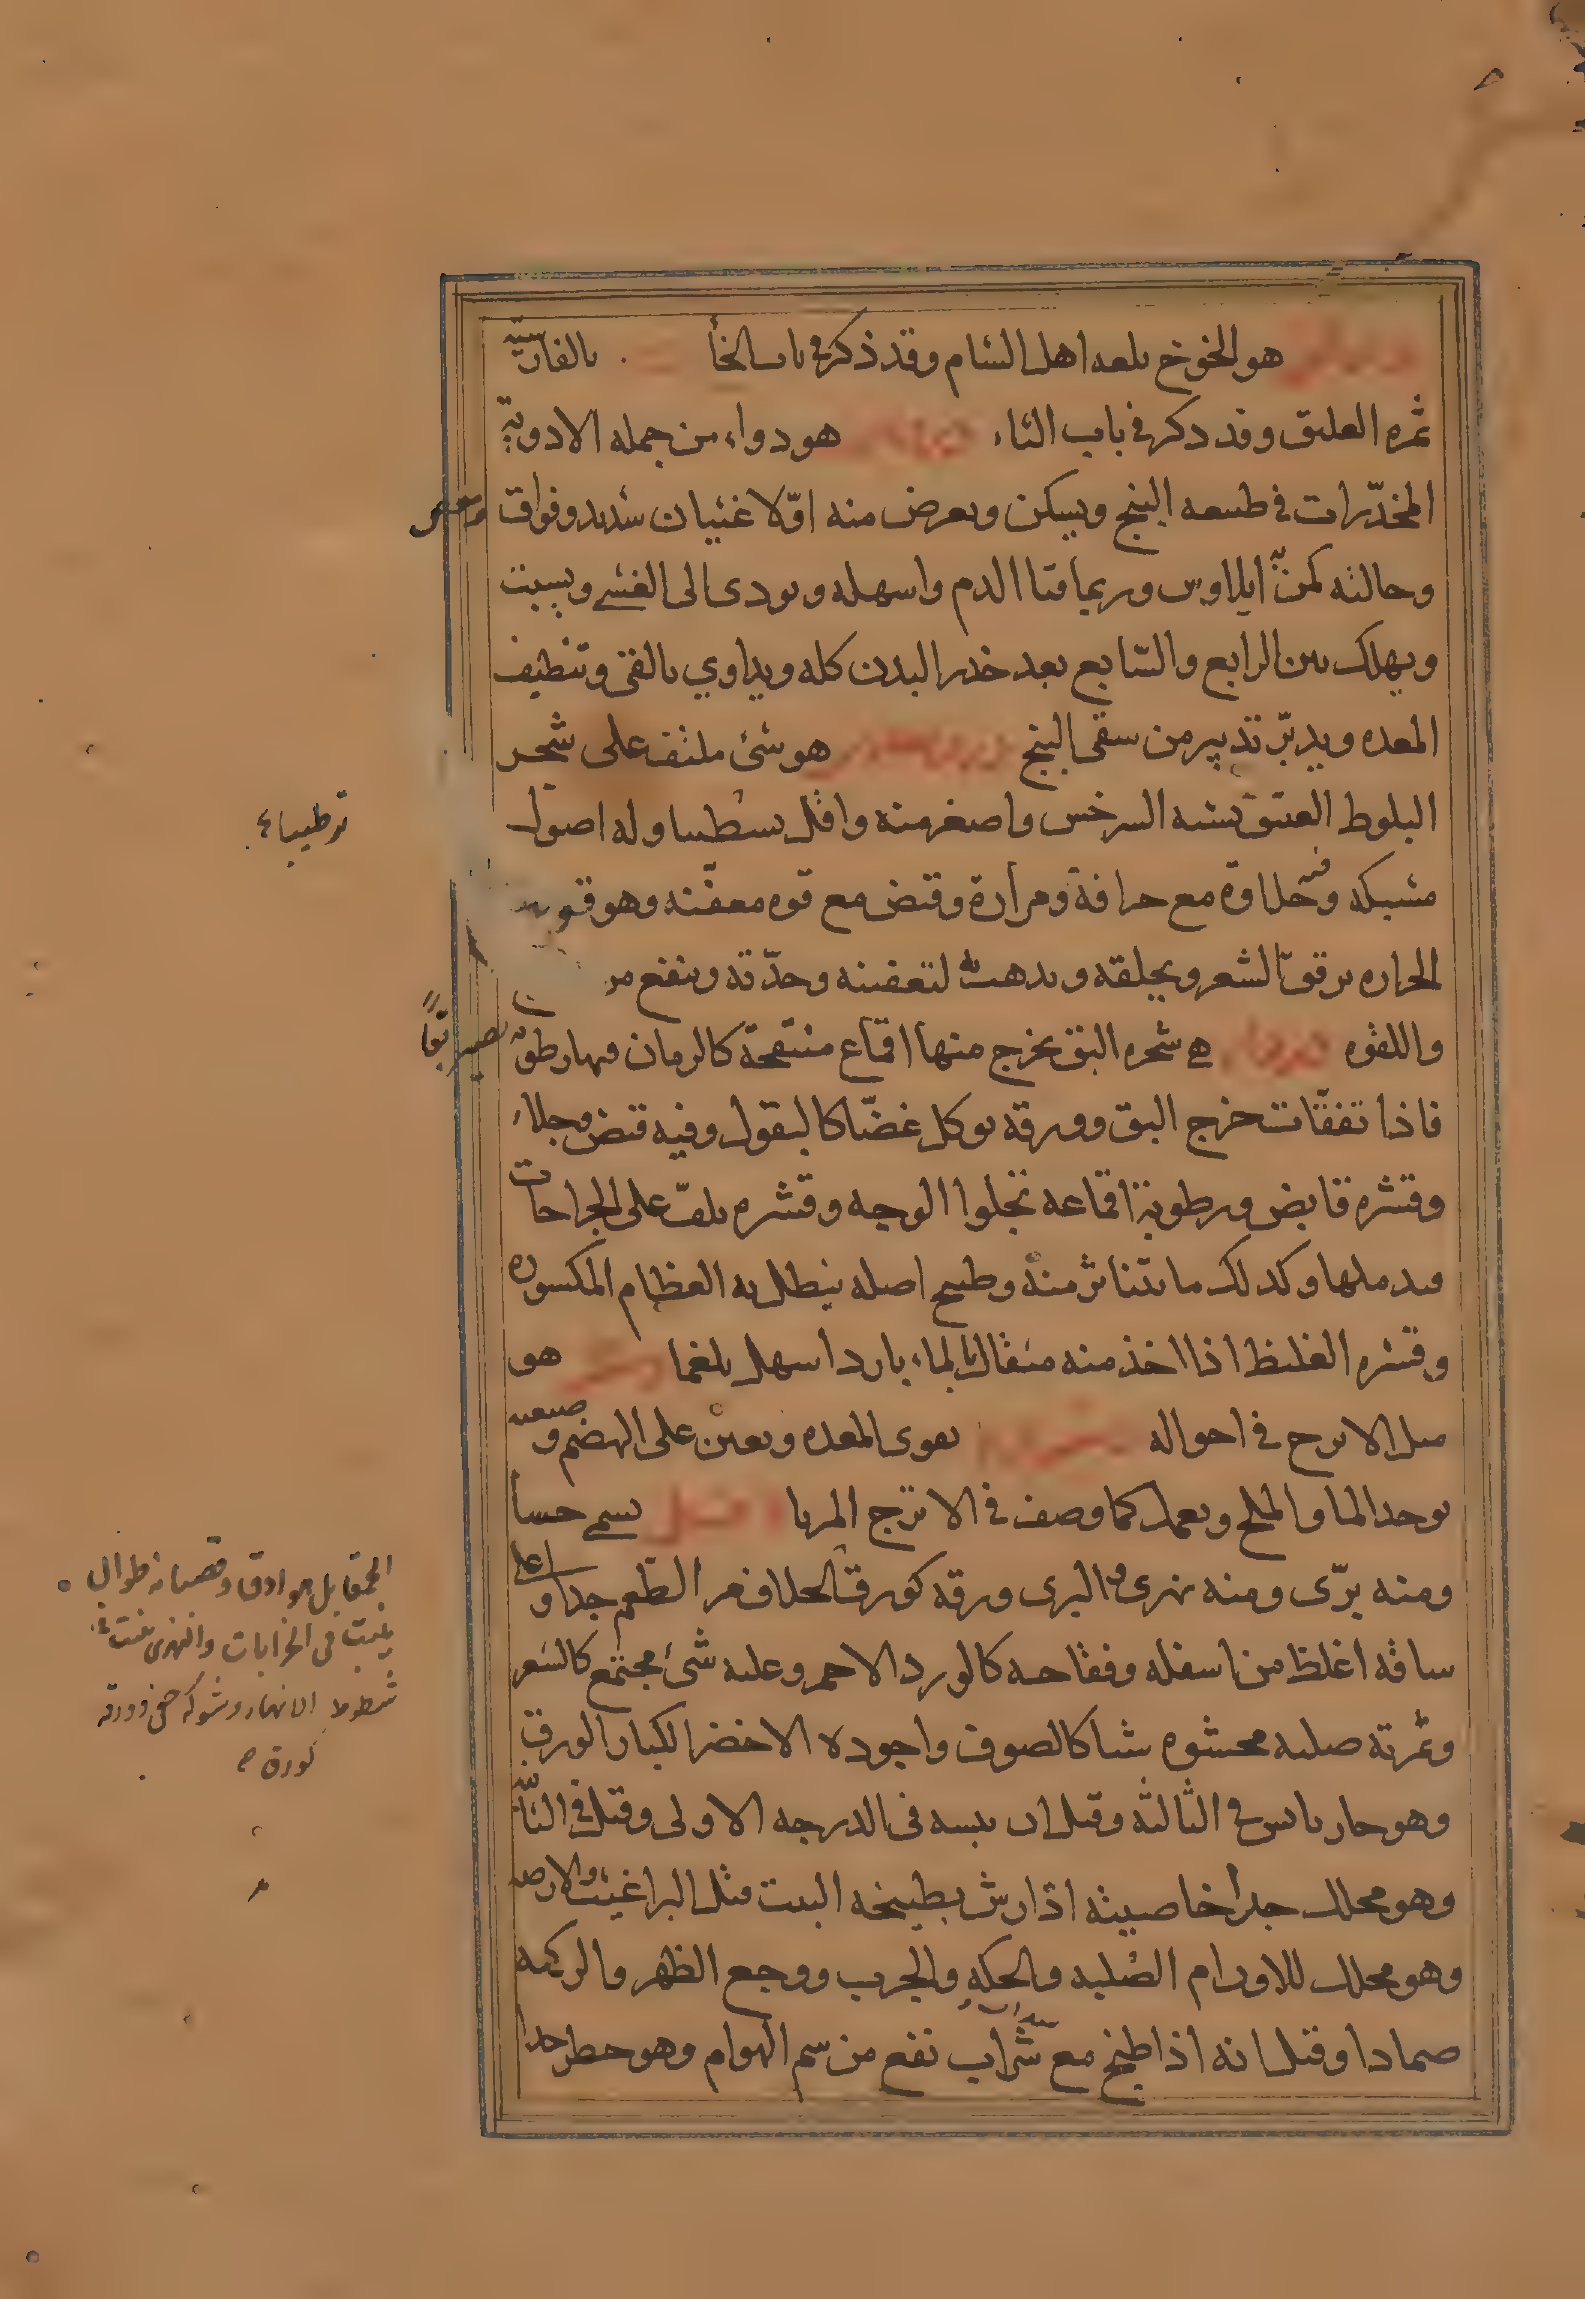 هو الخوخ بلغه اهل الشام وقد ذكر فى باب الخأ بالفارسية
ثمره العليق وقد ذكر فى باب الثاء هو دواء من جمله الادوية
المخدّرات فى طبيعه البنج ويسكن ويعرض منه اوّلا غثيان شديد وفواق
وحالته كمن به ايلاوس وربما قتا الدم واسهله ويودى الى الغشى ويسبت
ويهلك بين الرابع والسّابع بعد خدر البدن كله ويداوي بالقئ وتنظيف
المعده ويدبّر تدبير من سقى البنج هو شئ ملتف على شجر
البلوط العتيق يشبه السرخس واصغر منه واقل تشطيبا وله اصول
مشبكه وفيه حلاوة مع حرافة ومرارة وقبض مع قوه معفّنه وهو قوى
الحراره يرقق الشعر ويحلقه ويذهب به لتعفينه وحدّته وينفع من
واللقوه هى شجره البق يخرج منها اقماع منتفخة كالرمان فيها رطوبه تصير بقًا
فاذا تفقّات خرج البق وورقه يوكل غضّا كالبقول وفيه قبض وجلاء
وقشره قابض ورطوبة اقماعه تجلوا الوجه وقشره يلفّ على الجراحات
فيدملها وكذلك ما يتناثر منه وطبيخ اصله ينطل به العظام المكسوره
وقشره الغليظ اذا اخذ منه مثقال بالماء بارد اسهل بلغما هو
مثل الاترج فى احواله يقوى المعده ويعين على الهضم وصنعته
يوخذ الما والملح ويعمل كما وصف فى الاترج المربا يسمى حسا
ومنه برّى ومنه نهرى والبرى ورقه كورق الخلاف مر الطعم جدا واعلى
ساقه اغلظ من اسفله وفقاحه كالورد الاحمر وعليه شئ مجتمع كالشعر
وثمرته صلبه محشوه شيا كالصوف واجوده الاخضر الكبار الورق
وهو حار يابس فى الثالثه وقيل ان يبسه فى الدرجه الاولى وقيل فى الثانية
وهو محلل جدا خاصيته اذا رش بطبيخه البيت قتل البراغيث والارضه
وهو محلل للاورام الصلبه والحكه والجرب ووجع الظهر والركبه
ضمادا وقيل انه اذا طبخ مع شراب نفع من سم الهوام وهو خطر جدا
الحمقا بل هو ادق وقضبانه طوال
ينبت فى الخرابات والنهرى ينبت
شطوط الانهار وشوكه خفى وورقه
كورق